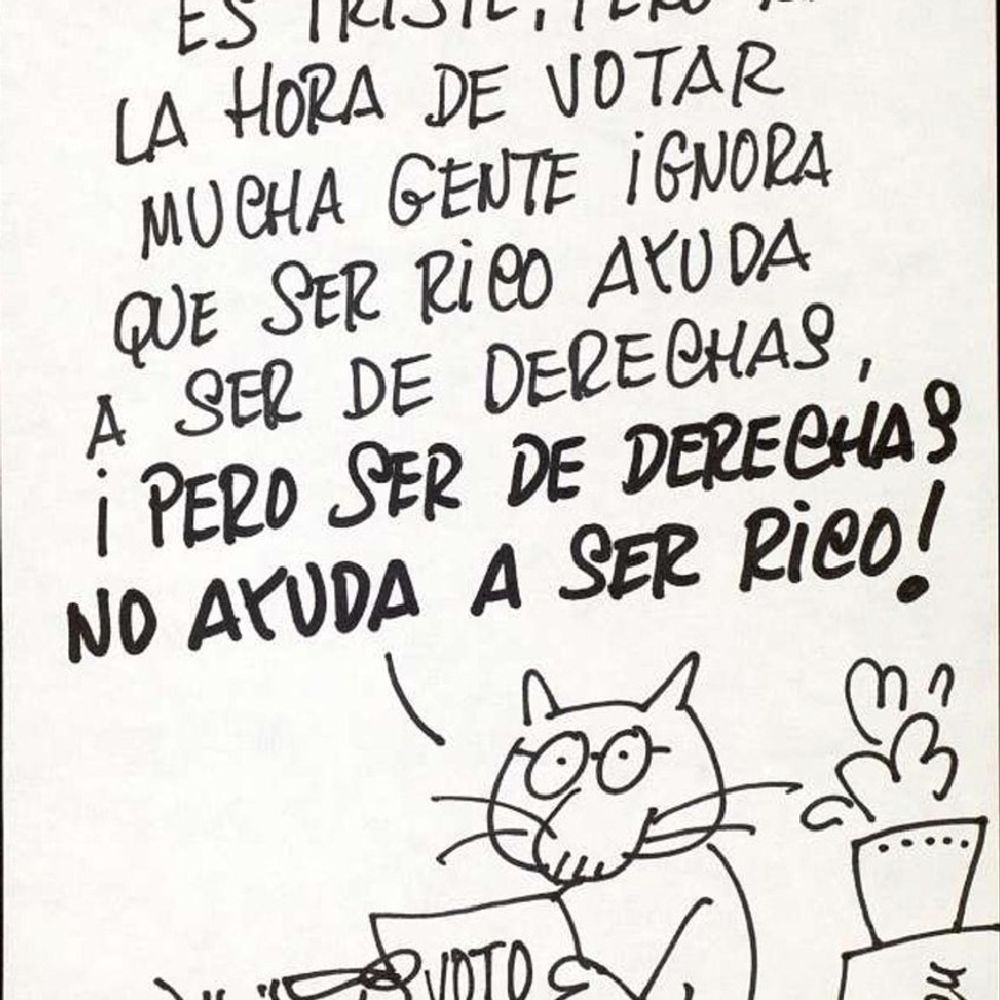 ES TRISTE, PERO A
LA HORA DE VOTAR
MUCHA GENTE IGNORA
QUE SER RICO AYUDA
A SER DE DERECHAS,
¡PERO SER DE DERECHAS
NO AYUDA A SER RICO!
VOTO